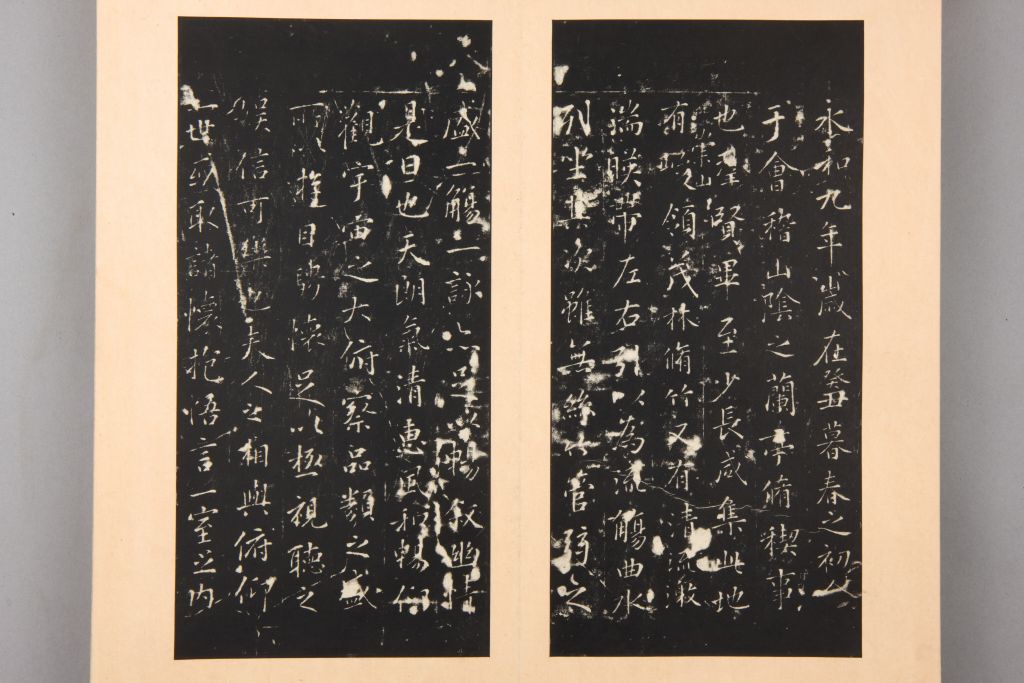 永和九年歲在癸丑暮春之初
于會稽山陰之蘭亭脩禊事
也羣賢畢至少長咸集此地
有崇山領茂林脩竹又有清流激
湍暎帶左右引以為流觴曲水
列坐其次雖無絲竹管弦之
盛一觴一詠亦足以暢叙幽情
是日也天朗氣清惠風和暢仰
觀宇宙之大俯察品類之盛
所以遊目騁懷足以極視聽之
娛信可樂也夫人之相與俯仰
一世或取諸懷抱悟言一室之內